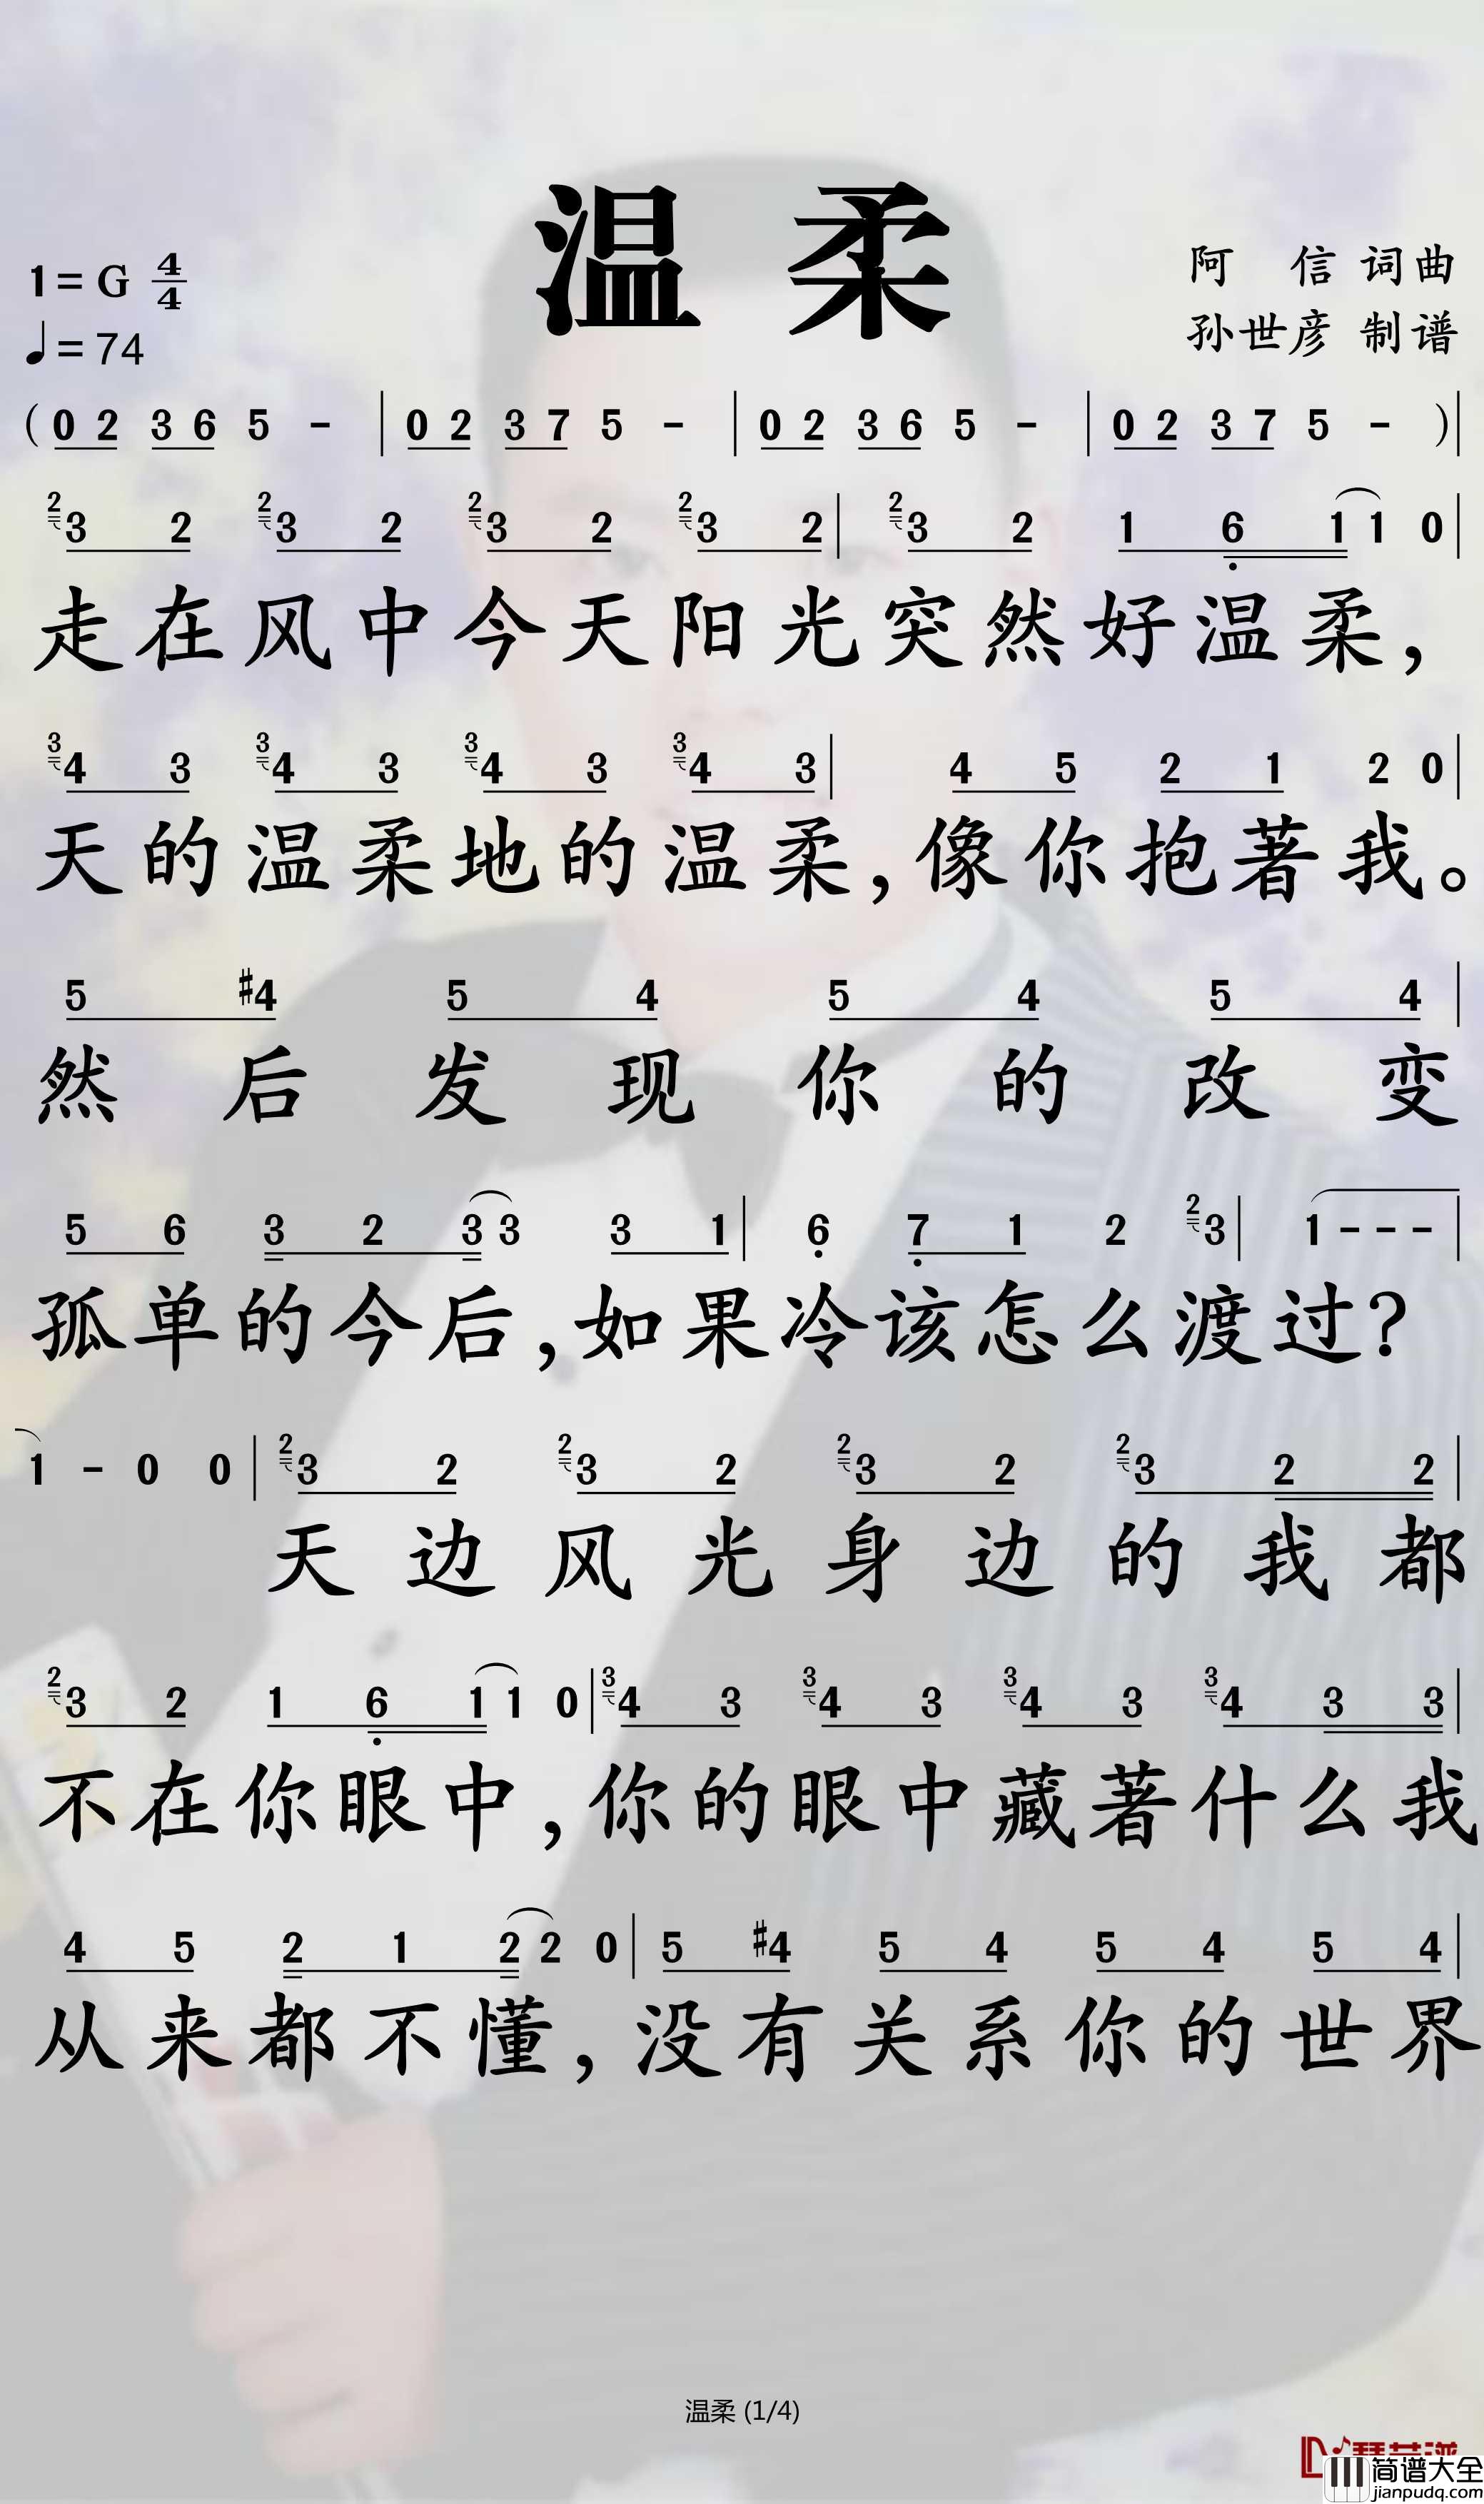 温柔
1=G 4/4
♩=74
阿 信 词曲
孙世彦 制谱
( 0 2 3 6 5 - | 0 2 3 7 5 - | 0 2 3 6 5 - | 0 2 3 7 5 - ) |
2 3 2 2 3 2 2 3 2 2 3 2 | 2 3 2 1 6 1 1 0 |
走在风中今天阳光突然好温柔,
3 4 3 3 4 3 3 4 3 3 4 3 | 4 5 2 1 2 0 |
天的温柔地的温柔,像你抱著我。
5 #4 5 4 5 4 5 4 |
然后发现你的改变
5 6 3 2 3 3 3 1 | 6 7 1 2 2 3 | 1 - - - |
孤单的今后,如果冷该怎么渡过?
1 - 0 0 | 2 3 2 2 3 2 2 3 2 2 3 2 2 |
天边风光身边的我都
2 3 2 1 6 1 1 0 | 3 4 3 3 4 3 3 4 3 3 4 3 3 |
不在你眼中,你的眼中藏著什么我
4 5 2 1 2 2 0 | 5 #4 5 4 5 4 5 4 |
从来都不懂,没有关系你的世界
温柔 (1/4)
简谱大全
jianpudq.com